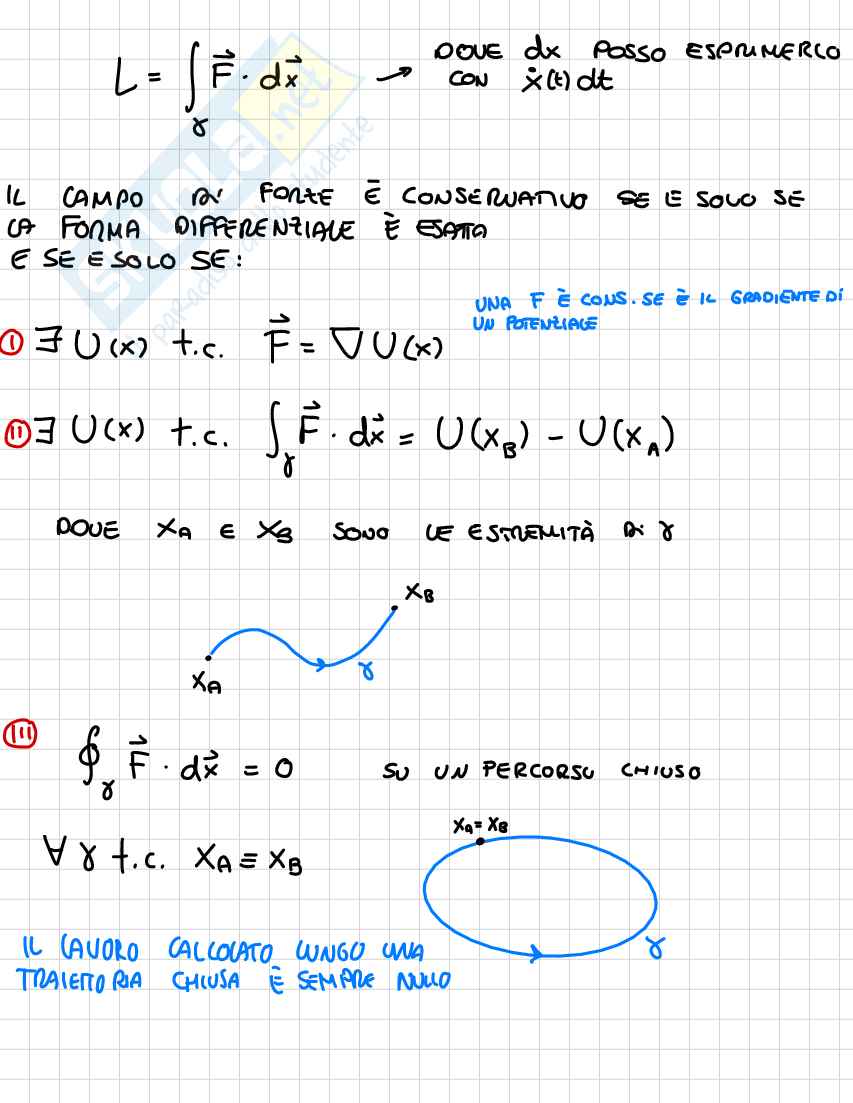 L = ∫_γ F⃗ · dx⃗ → DOVE dx POSSO ESPRIMERLO
CON ẋ(t) dt
IL CAMPO DI FORZE È CONSERVATIVO SE E SOLO SE
LA FORMA DIFFERENZIALE È ESATTA
E SE E SOLO SE:
UNA F È CONS. SE È IL GRADIENTE DI
UN POTENZIALE
I ∃ U(x) t.c. F⃗ = ∇U(x)
II ∃ U(x) t.c. ∫_γ F⃗ · dx⃗ = U(x_B) - U(x_A)
DOVE x_A E x_B SONO LE ESTREMITÀ DI γ
x_B
x_A
γ
III
∮_γ F⃗ · dx⃗ = 0 SU UN PERCORSO CHIUSO
∀ γ t.c. x_A ≡ x_B
x_A = x_B
γ
IL LAVORO CALCOLATO LUNGO UNA
TRAIETTORIA CHIUSA È SEMPRE NULLO